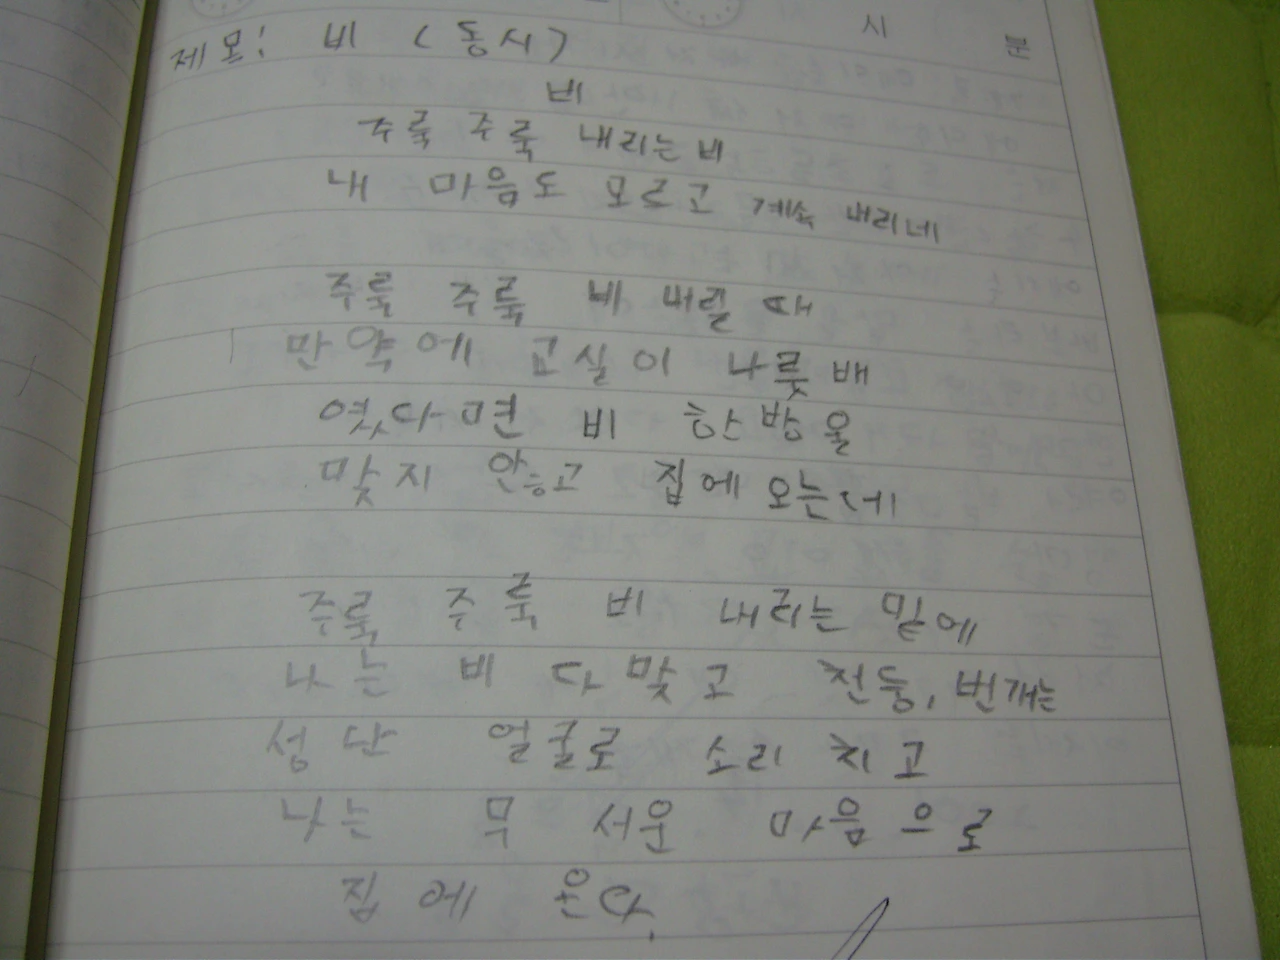 시 분
제목: 비 (동시)
비
주룩 주룩 내리는 비
내 마음도 모르고 계속 내리네
주룩 주룩 비 내릴 때
만약에 교실이 나룻배
였다면 비 한방울
맞지 안흐고 집에 오는데
주룩 주룩 비 내리는 밑에
나는 비 다 맞고 천둥, 번개는
성난 얼굴로 소리 치고
나는 무서운 마음으로
집에 온다.